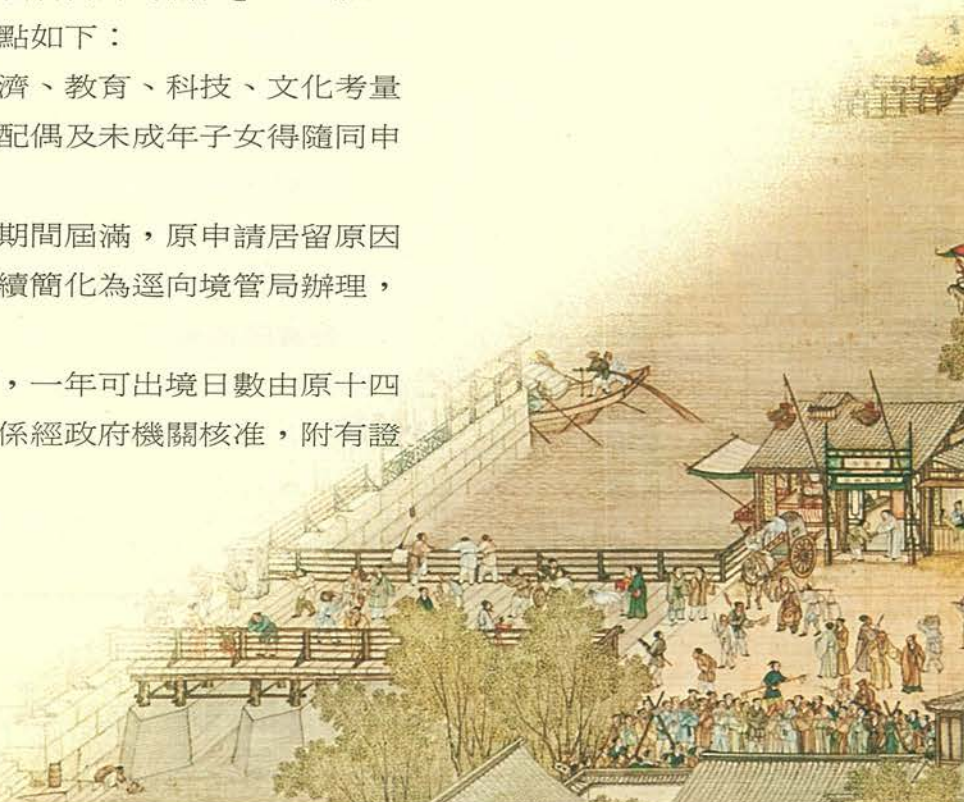 點如下：
濟、教育、科技、文化考量
配偶及未成年子女得隨同申
期間屆滿，原申請居留原因
續簡化為逕向境管局辦理，
，一年可出境日數由原十四
係經政府機關核准，附有證